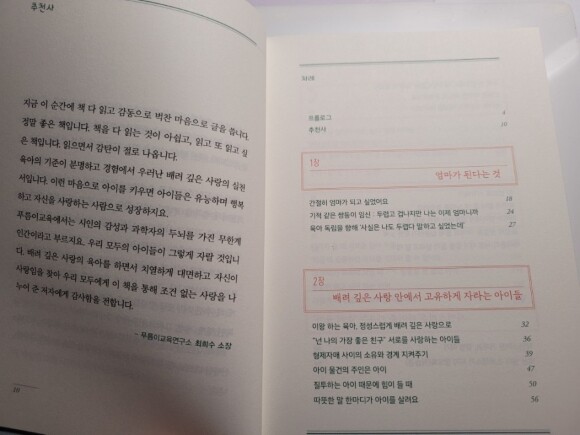 추천사
지금 이 순간에 책 다 읽고 감동으로 벅찬 마음으로 글을 씁니다.
정말 좋은 책입니다. 책을 다 읽는 것이 아쉽고, 읽고 또 읽고 싶
은 책입니다. 읽으면서 감탄이 절로 나옵니다.
육아의 기준이 분명하고 경험에서 우러난 배려 깊은 사랑의 실천
서입니다. 이런 마음으로 아이를 키우면 아이들은 유능하며 행복
하고 자신을 사랑하는 사람으로 성장하지요.
푸름이교육에서는 시인의 감성과 과학자의 두뇌를 가진 무한계
인간이라고 부르지요. 우리 모두의 아이들이 그렇게 자랄 것입니
다. 배려 깊은 사랑의 육아를 하면서 치열하게 대면하고 자신이
사랑임을 찾아 우리 모두에게 이 책을 통해 조건 없는 사랑을 나
누어 준 저자에게 감사함을 전합니다.
– 푸름이교육연구소 최희수 소장
차례
프롤로그 4
추천사 10
1장
엄마가 된다는 것
간절히 엄마가 되고 싶었어요 18
기적 같은 쌍둥이 임신 : 두렵고 겁나지만 나는 이제 엄마니까 24
육아 독립을 향해 '사실은 나도 두렵다 말하고 싶었는데' 27
2장
배려 깊은 사랑 안에서 고유하게 자라는 아이들
이왕 하는 육아, 정성스럽게 배려 깊은 사랑으로 32
"넌 나의 가장 좋은 친구" 서로를 사랑하는 아이들 36
형제자매 사이의 소유와 경계 지켜주기 39
아이 물건의 주인은 아이 47
질투하는 아이 때문에 힘이 들 때 50
따뜻한 말 한마디가 아이를 살려요 56